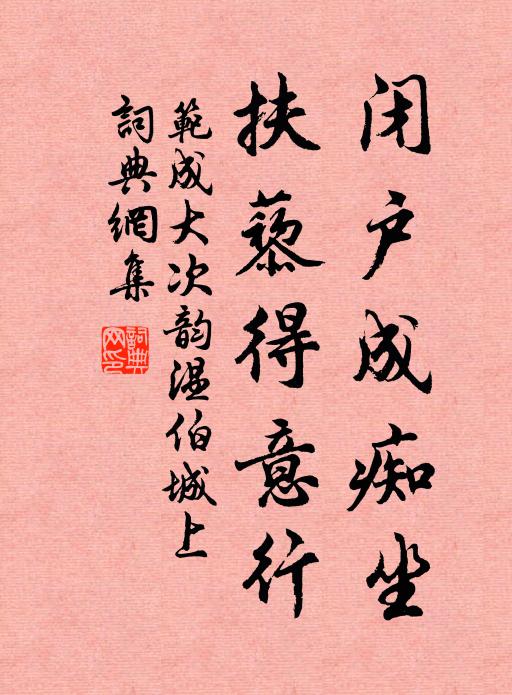 闭户成痴坐
扶藜得意行
範成大次韵温伯城上
詞典網集
詞典
网印